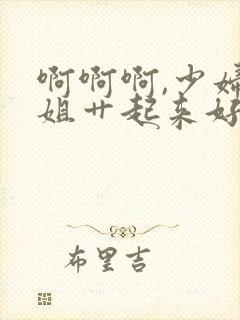 啊啊啊,少妇
姐廿起来好
布里吉